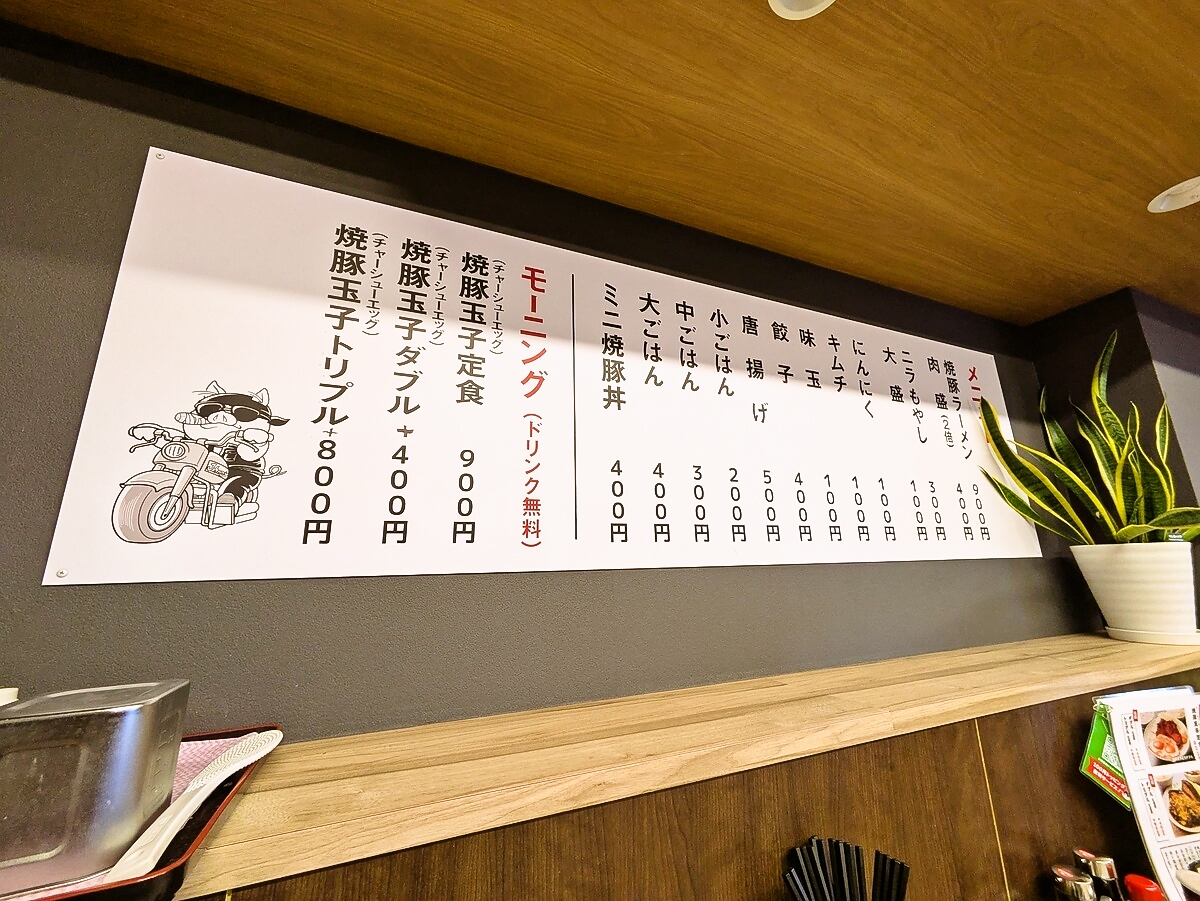 メニ
焼豚ラーメン 900円
肉盛(2倍) 400円
ニラもやし 300円
大盛 100円
にんにく 100円
キムチ 100円
味玉 100円
餃子 400円
唐揚げ 500円
小ごはん 200円
中ごはん 300円
大ごはん 400円
ミニ焼豚丼 400円
モーニング(ドリンク無料)
(チャーシューエッグ)
焼豚玉子定食 900円
(チャーシューエッグ)
焼豚玉子ダブル+400円
(チャーシューエッグ)
焼豚玉子トリプル+800円